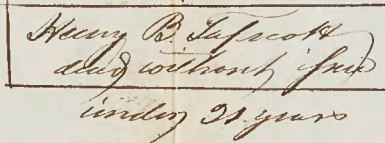 Henry B Tapscott
dead without issue
under 21 years